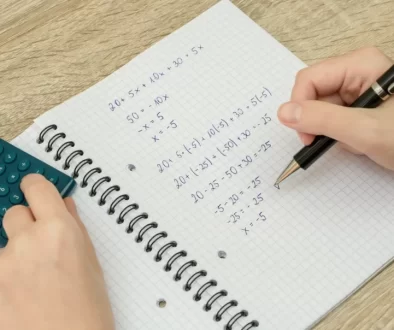 20+5x+10x+30=5x
50=-10x
-x=5
x=-5
20+5·(-5)+10(-5)+30=5(-5)
20+(-25)+(-50)+30=-25
20-25-50+30=-25
-5-20=-25
-25=-25
x=-5